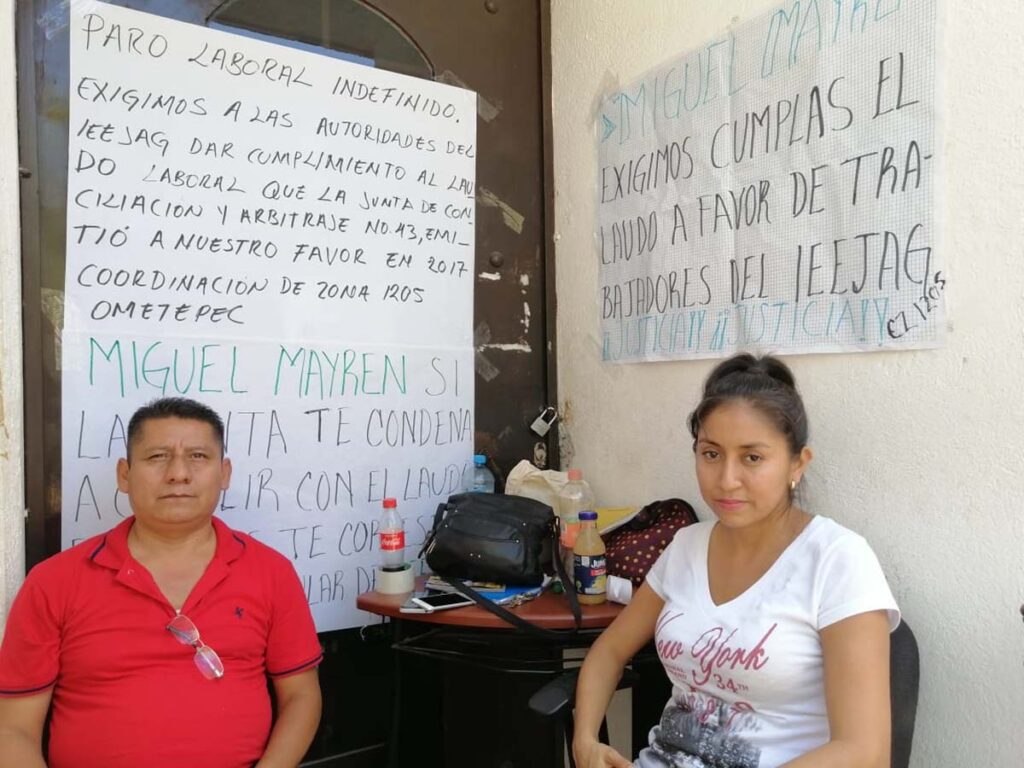 PARO LABORAL INDEFINIDO.
EXIGIMOS A LAS AUTORIDADES DEL
IEEJAG DAR CUMPLIMIENTO AL LAU
DO LABORAL QUE LA JUNTA DE CON-
CILIACIÓN Y ARBITRAJE NO.43, EMI-
TIÓ A NUESTRO FAVOR EN 2017
COORDINACIÓN DE ZONA 1205
OMETEPEC
MIGUEL MAYREN SI
LA TE CONDENA
CON EL LAUDO
TE
MIGUEL MAYREN
EXIGIMOS CUMPLAS EL
LAUDO A FAVOR DE TRA-
BAJADORES DEL IEEJAG
¡JUSTICIA!! ¡¡JUSTICIA!!
CZ 1205
Coca-Cola
New York
34TH